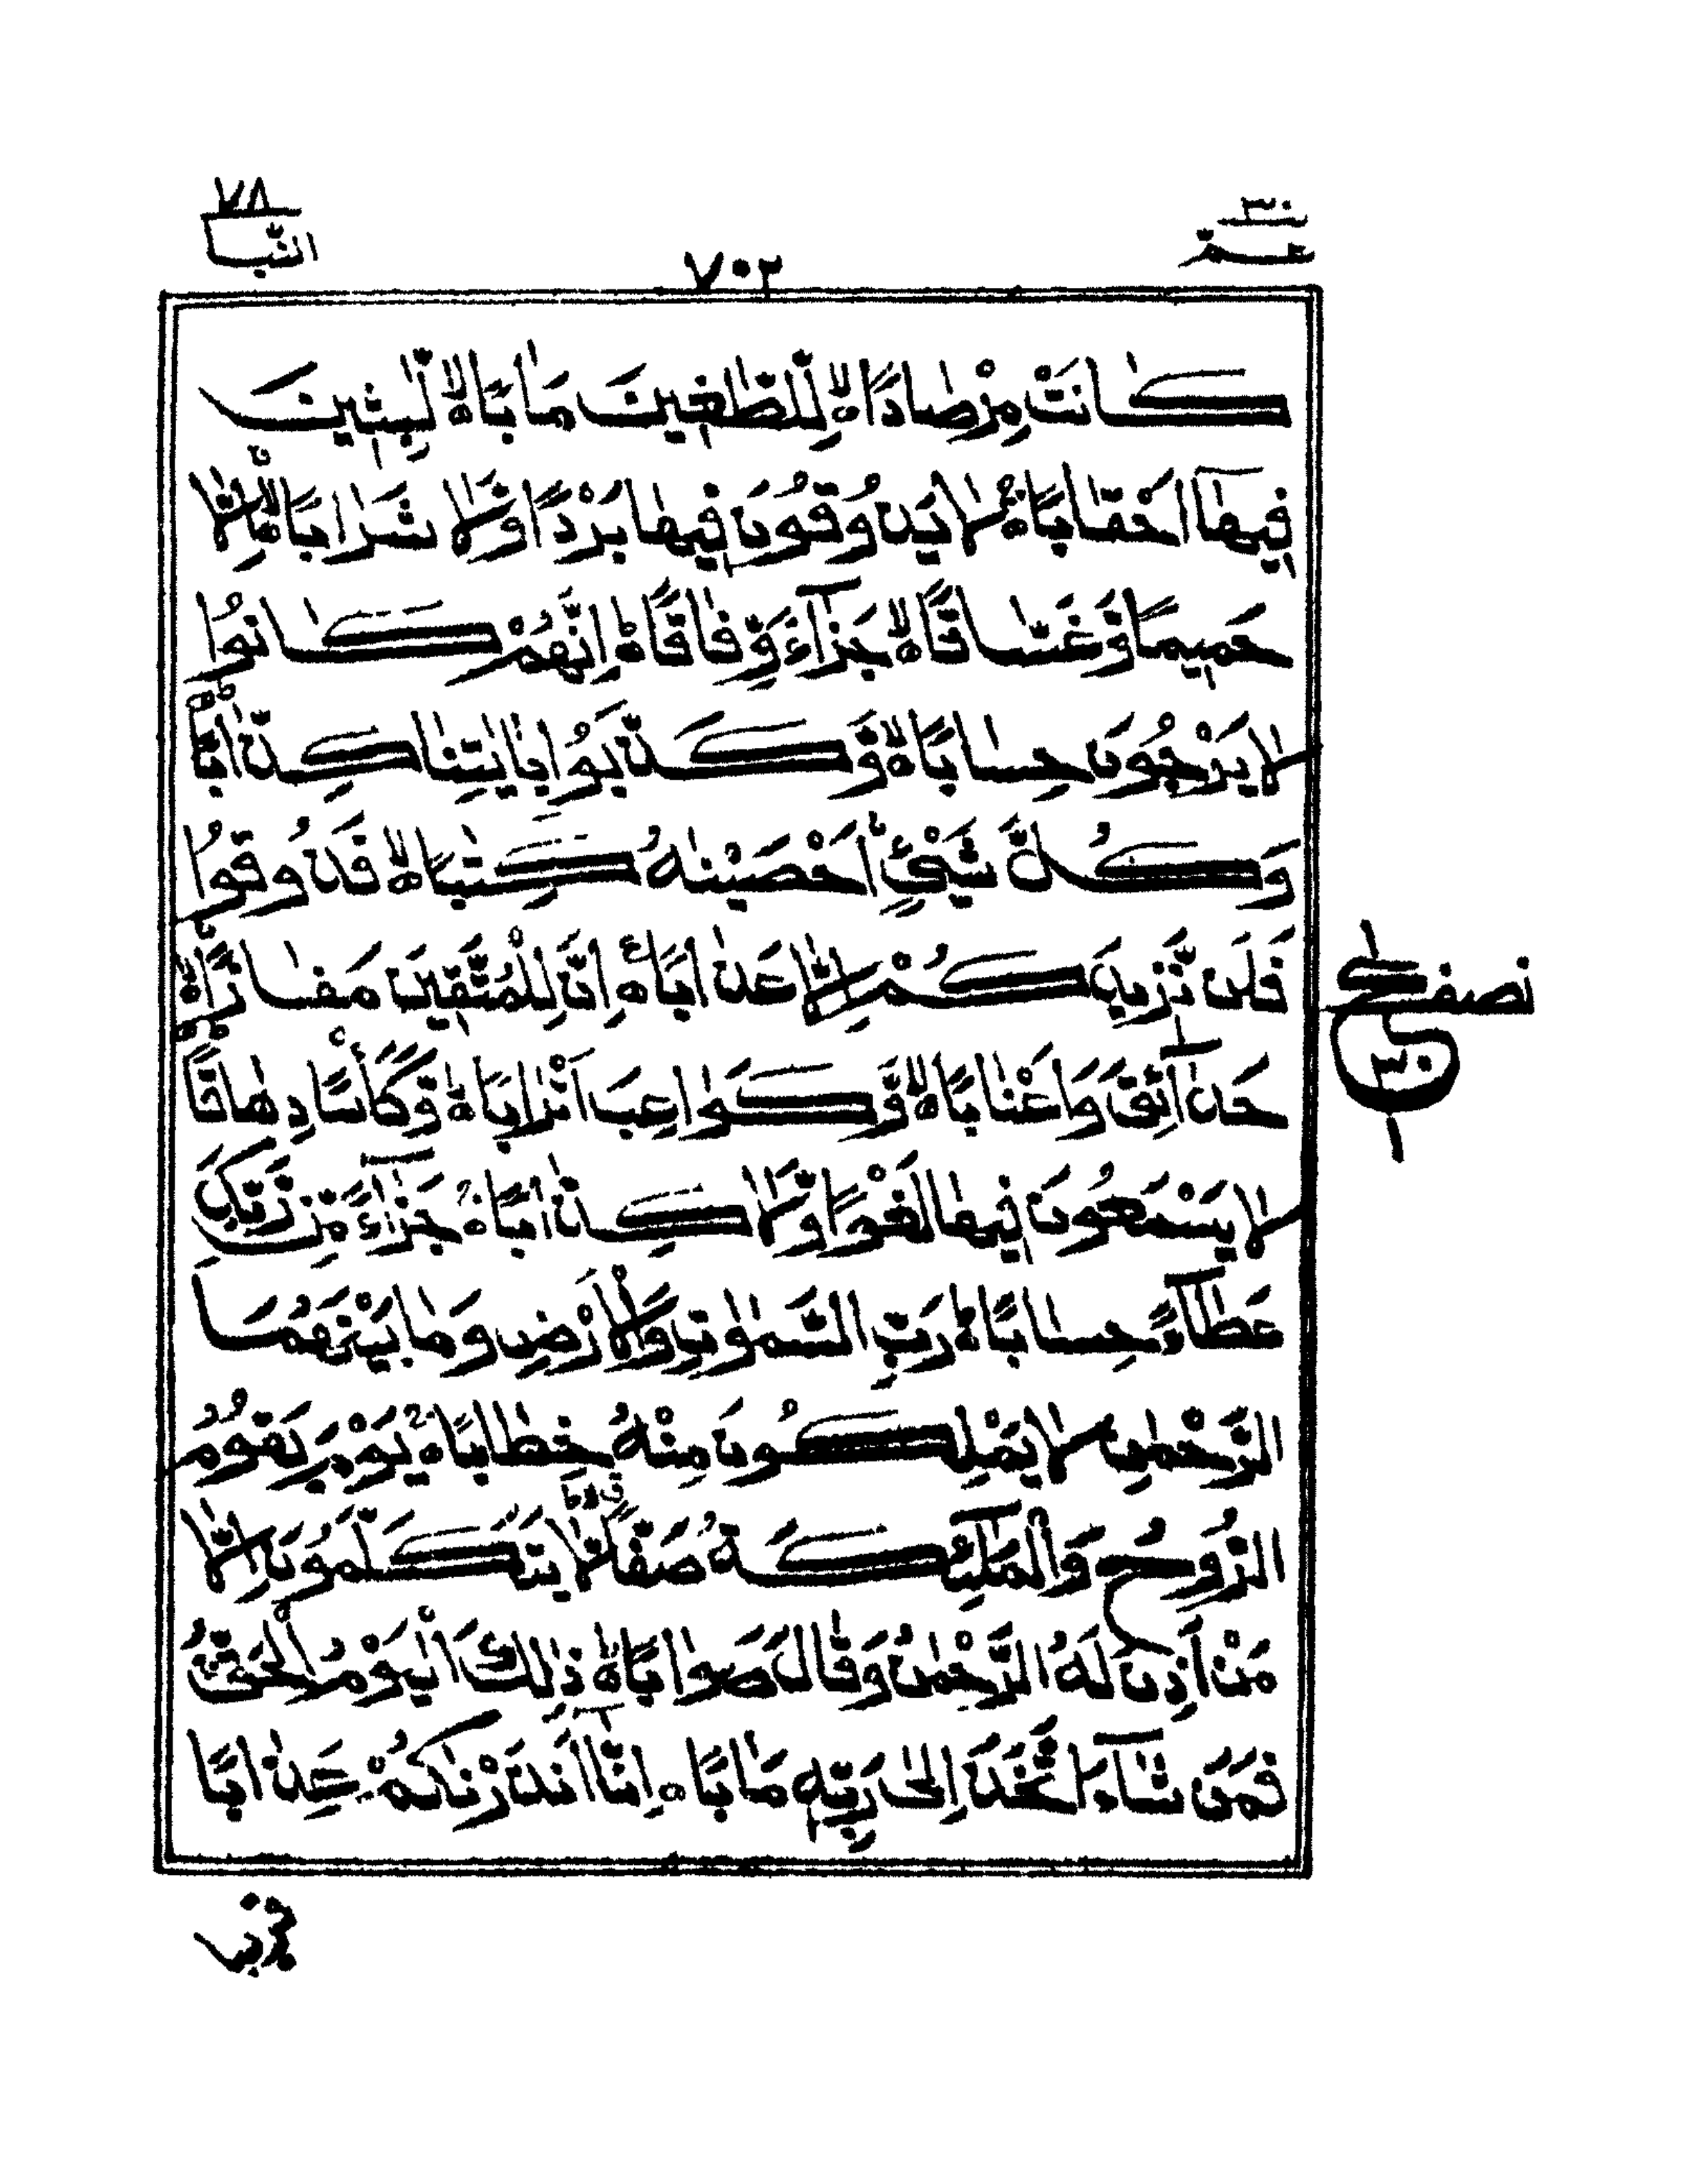 ٣٠
عـم
٧٠٢
٧٨
النبا
كَانَتْ مِرْصَادًا ۙ لِّلطّٰغِيْنَ مَاٰبًا ۙ لّٰبِثِيْنَ
فِيْهَآ اَحْقَابًا ۚ لَا يَذُوْقُوْنَ فِيْهَا بَرْدًا وَّلَا شَرَابًا ۙ اِلَّا
حَمِيْمًا وَّغَسَّاقًا ۙ جَزَآءً وِّفَاقًا ؕ اِنَّهُمْ كَانُوْا
لَا يَرْجُوْنَ حِسَابًا ۙ وَّكَذَّبُوْا بِاٰيٰتِنَا كِذَّابًا ؕ
وَكُلَّ شَيْءٍ اَحْصَيْنٰهُ كِتٰبًا ۙ فَذُوْقُوْا
فَلَنْ نَّزِيْدَكُمْ اِلَّا عَذَابًا ۟ اِنَّ لِلْمُتَّقِيْنَ مَفَازًا ۙ
حَدَآئِقَ وَاَعْنَابًا ۙ وَّكَوَاعِبَ اَتْرَابًا ۙ وَّكَاْسًا دِهَاقًا ؕ
لَا يَسْمَعُوْنَ فِيْهَا لَغْوًا وَّلَا كِذّٰبًا ۚ جَزَآءً مِّنْ رَّبِّكَ
عَطَآءً حِسَابًا ۙ رَّبِّ السَّمٰوٰتِ وَالْاَرْضِ وَمَا بَيْنَهُمَا
الرَّحْمٰنِ لَا يَمْلِكُوْنَ مِنْهُ خِطَابًا ۚ يَوْمَ يَقُوْمُ
الرُّوْحُ وَالْمَلٰٓئِكَةُ صَفًّا ۙ لَّا يَتَكَلَّمُوْنَ اِلَّا
مَنْ اَذِنَ لَهُ الرَّحْمٰنُ وَقَالَ صَوَابًا ۟ ذٰلِكَ الْيَوْمُ الْحَقُّ
فَمَنْ شَآءَ اتَّخَذَ اِلٰى رَبِّهٖ مَاٰبًا ۟ اِنَّآ اَنْذَرْنٰكُمْ عَذَابًا
نصف
ع
٣٠
١
قريبا